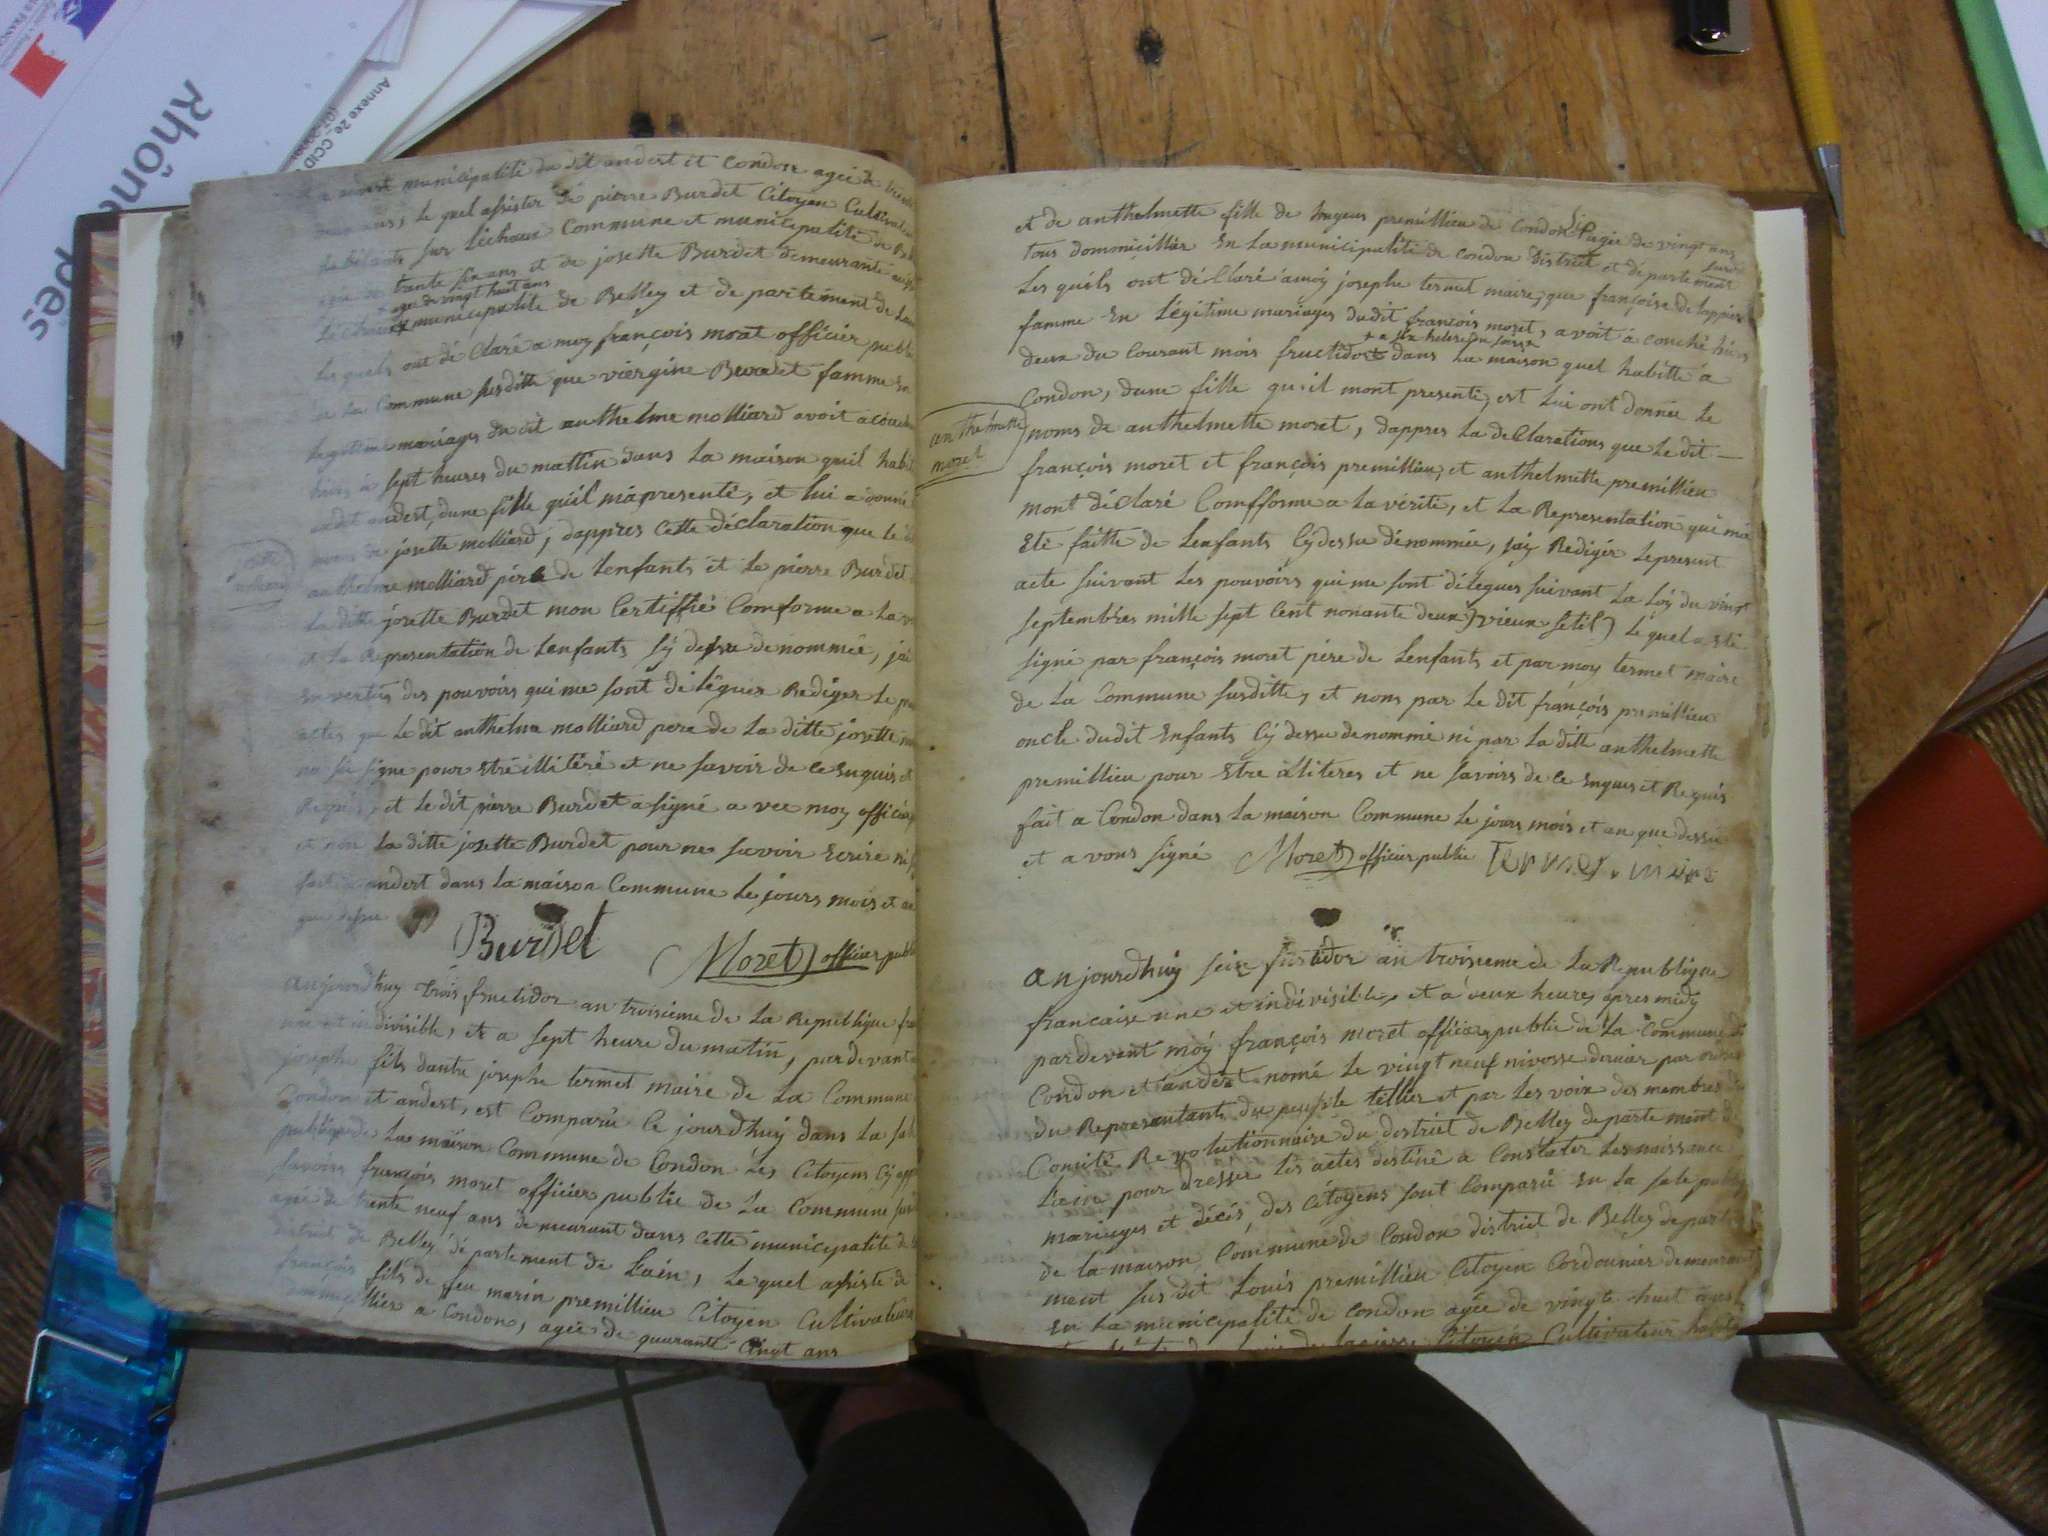 Rhône
Annexe 2e_CCID
municipalité du dit andert et Condon agée de
ans, le quel assister de pierre Burdet Citoyen Cultivateur
sur Léchaux Commune et municipalité de
tante six ans et de josette Burdet demeurante
age de vingt huit ans
municipalité de Belley et de partement de
Les quels ont dé Claré a moy françois moret officier public
de La Commune susditte que viergine Burdet famme En
Legitime mariages du dit anthelme molliard avoit acouché
hier a sept heures du mattin dans La maison quil habit
audit andert, dune fille quil ma presenté, et lui a donné
josette molliard, dappres Cette déclaration que le
anthelme molliard pere de Lenfants et Le pierre Burdet
La ditte josette Burdet mon Certiffié Comforme a La
et La Representation de Lenfants Sy dessu denommée, jai
En vertus des pouvoirs qui me sont délégues Rediger Le
actes que Le dit anthelme molliard pere de La ditte josette
na su signe pour estre illitéré et ne savoir de ce Enquis et
Requis, et le dit pierre Burdet a signé a vec moy officier
et non La ditte josette Burdet pour ne savoir Ecrire ni
fait a andert dans La maison Commune Le jours mois et an
que dessu
Burdet
Moret officier public
aujourdhuy trois fructidor an troisieme de La Republique
une et indivisible, et a sept heure du matin, par devant
josephe fils dautre josephe termet maire de La Commune
Condon et andert, est Comparû Ce jourdhuy dans La
publique de La maison Commune de Condon Les Citoyens Cy
savoirs françois moret officier public de La Commune
agé de trente neuf ans demeurant dans Cette municipalité de
district de Belley département de Lain, Le quel assiste de
françois fils de feu marin premillieu Citoyen Cultivateur
a Condon, agée de quarante Cingt ans
et de anthelmette fille de premillieu de Condon agée de vingt ans
tous domoniciller En La municipalité de Condon District et département
susdit
Les quels ont dé Claré a moy josephe termet maire, que françoise de Lappier
famme En Légitime mariages dudit françois moret, avoit a couché hier
a six heures du soir
deux du Courant mois fructidor dans La maison quel habitte a
Condon, dune fille quil mont presenté, est Lui ont donnée Le
anthelmette
moret
noms de anthelmette moret, dappres La deClarations que Le dit
françois moret et françois premillieu, et anthelmette premillieu
mont déClaré Comfforme a La vérité, et La Representation qui ma
Eté faitte de Lenfants Cydessu dénommée, jay Rediger Lepresent
acte suivant Les pouvoirs qui me sont délegues suivant La Loy du vingt
septembres mille sept Cent nonante deux (vieux stil) Le quel a Eté
signé par françois moret pere de Lenfants et par moy termet maire
de La Commune susditte, et nons par Le dit françois premillieu
oncle dudit Enfants Cy dessu denommé ni par La ditte anthelmette
premillieu pour Estre illiteres et ne savoirs de Ce Enques et Requis
fait a Condon dans La maison Commune Le jours mois et an que dessu
et a vons signé Moret officier public Termet maire
aujourdhuy seize frutidor an troisieme de La Republique
francaise une et indivisible, et a deux heures apres midy
pardevent moy françois moret officier public de La Commune de
Condon et andert nomé Le vingt neuf nivosse dernier par
du Representants du peuple tellier et par Les voix des membres du
Comité Revolutionnaire du district de Belley departement de
Lain pour dresser Les actes destiné a Constater Les naissance
mariages et décés, des Citoyens sont Comparû En La sale public
de la maison Commune de Condon district de Belley depart
ment susdit Louis premillieu Citoyen Cordonnier demeurant
En La municipalité de Condon agée de vingte huit
Citoyen Cultivateur